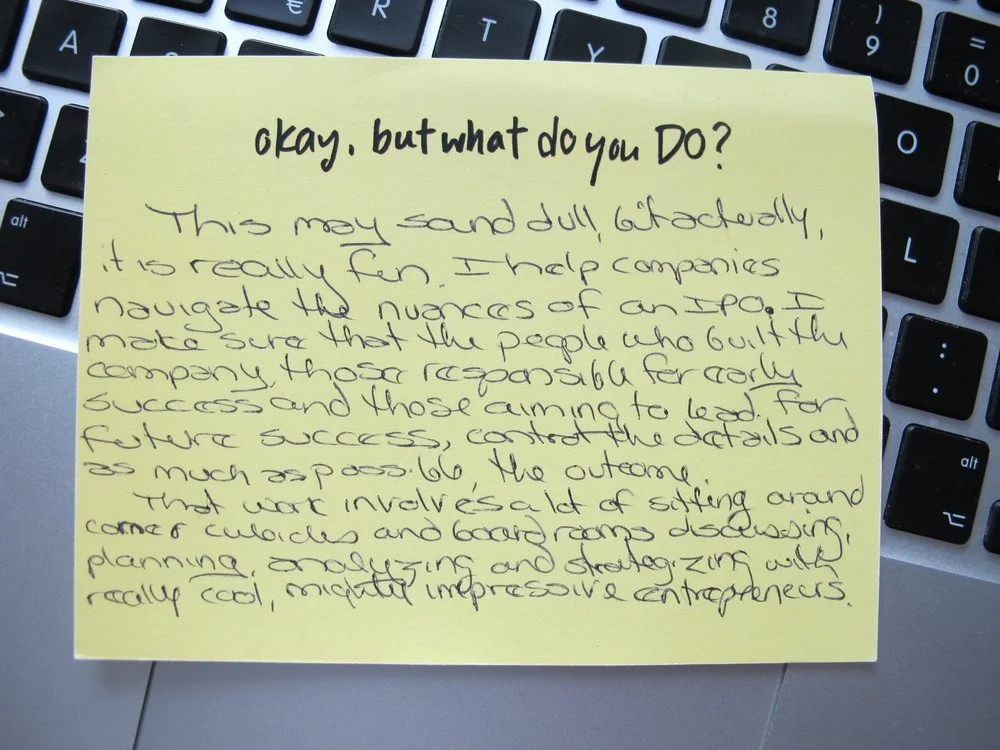 A
€
R
T
Y
8
)
9
=
0
O
L
:
.
alt
alt
okay, but what do you DO?
This may sound dull, but actually,
it is really fun. I help companies
navigate the nuances of an IPO. I
make sure that the people who built the
company, those responsible for early
success and those aiming to lead for
future success, control the details and
as much as possible, the outcome.
That work involves a lot of sitting around
corner cubicles and boardrooms discussing,
planning, analyzing and strategizing with
really cool, mightily impressive entrepreneurs.